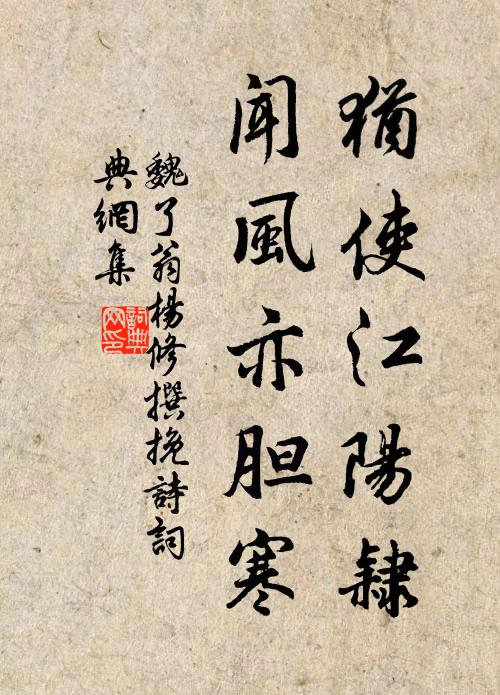 猶使江陽隸
聞風亦胆寒
魏了翁楊修撰挽詩詞
典網集
詞典网印